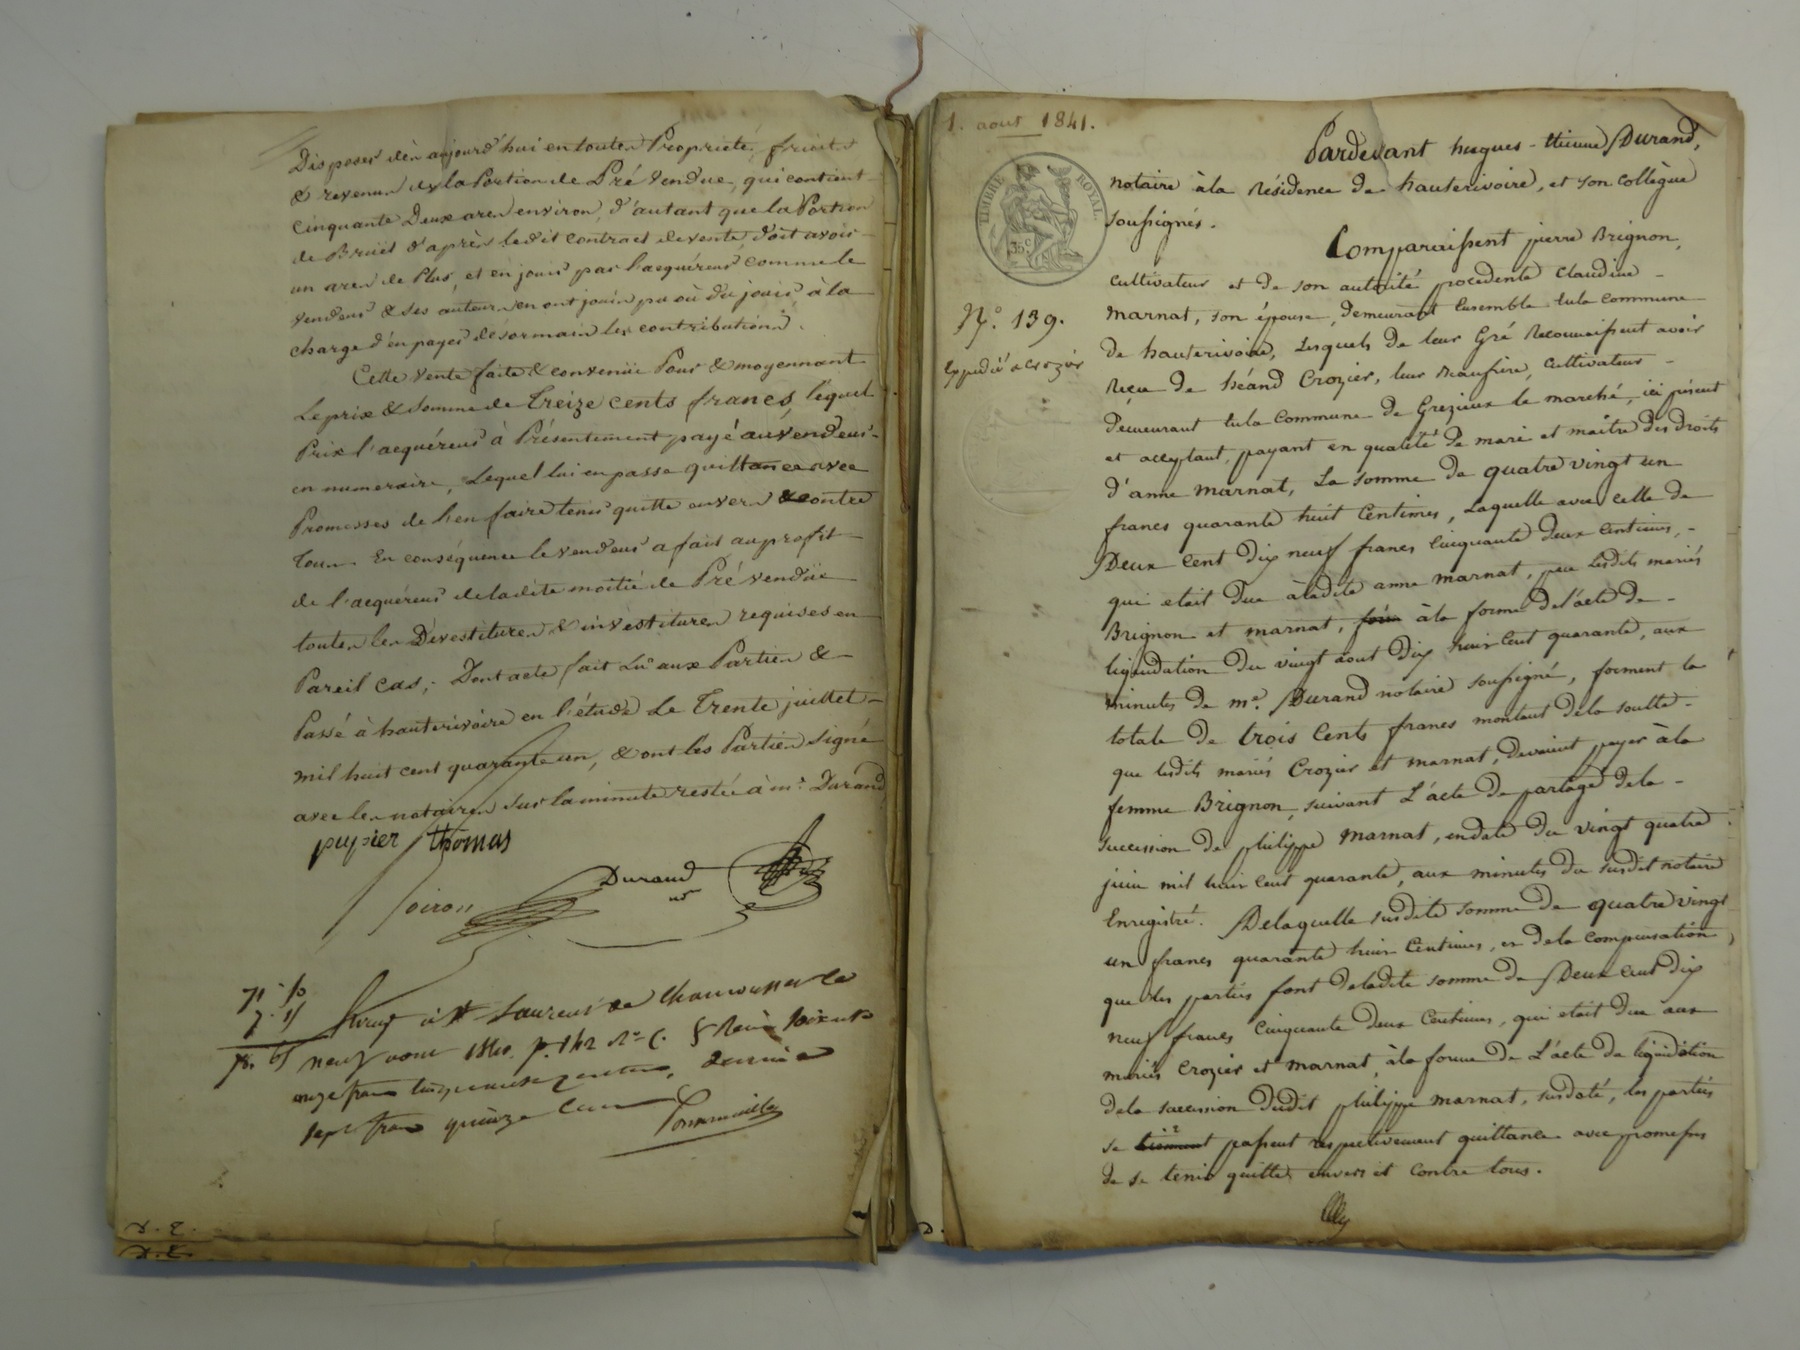 Disposer dès aujourd'hui en toutes Propriété, fruits
& revenus de la Portion de Pré vendue, qui contient
cinquante Deux ares environ, d'autant que la Portion
de Bruët d'après ledit contract de vente, doit avoir
un ares de Plus, et en jouir par l'acquéreur comme le
vendeur & ses auteurs en ont jouïs pu où du jouir, à la
charge d'en payer désormais les contributions.
Cette vente faite & convenüe Pour & moyennant
le prix & somme de Treize cents francs, léquel
Prix l'acquéreur à Présentement payé au vendeur
en numeraire, Lequel lui en passe quittance avec
Promesses de l'en faire tenir quitte envers & contre
tous. En conséquence le vendeur a fait au profit
de l'acquéreur de ladite moitié de Pré vendüe
toutes les Dévestitures & invéstitures requises en
Pareil cas; Dont acte fait Lu aux Parties &
Passé à hauterivoire en l'étude Le Trente juillet
mil huit cent quarante un, & ont les Parties signé
avec les notaires sur la minute restée à mr. Durand
pupier thomas
Durand
nre
Coiron
71 50
7 15
78 65
à St Laurent de Chamousset le
neuf août
onze francs cinquante centimes, decime
sept francs quinze centimes
D. E.
D. E.
1. aout 1841.
TIMBRE ROYAL.
35c
N.° 139.
Expedié à Crozier
Pardevant hugues-Etienne Durand,
notaire à la résidence de hauterivoire, et son collègue
soussignés.
Comparaissent pierre Brignon,
cultivateur et de son autorité procedente Claudine
Marnat, son épouse, demeurant ensemble en la commune
de hauterivoire, Lesquels de leur Gré reconnaissent avoir
reçu de Léand Crozier, leur Beaufrère, cultivateur
demeurant en la Commune de Grezieux le marché, ici présent
et acceptant, payant en qualité de mari et maître des droits
d'anne Marnat, La somme de quatre vingt un
francs quarante huit Centimes, Laquelle avec celle de
Deux Cent dix neuf francs Cinquante deux Centimes,
qui etait due à ladite anne marnat, par lesdits mariés
Brignon et marnat, à la forme de l'acte de
liquidation du vingt aout dix huit cent quarante, aux
minutes de me. Durand notaire soussigné, forment la
totale de trois Cents francs montant de la soulte
que lesdits mariés Crozier et marnat, devaient payer à la
femme Brignon, suivant L'acte de partage de la
succession de philippe Marnat, en date du vingt quatre
juin mil huit cent quarante, aux minutes du susdit notaire
Enregistré. De laquelle susdite somme de quatre vingt
un francs quarante huit Centimes, et de la compensation
que les parties font de ladite somme de Deux cent dix
neuf francs Cinquante deux Centimes, qui etait due aux
mariés Crozier et Marnat, à la forme de L'acte de liquidation
de la succession dudit philippe marnat, susdaté, les parties
se passent respectivement quittance avec promesses
de se tenir quitte envers et contre tous.
D.